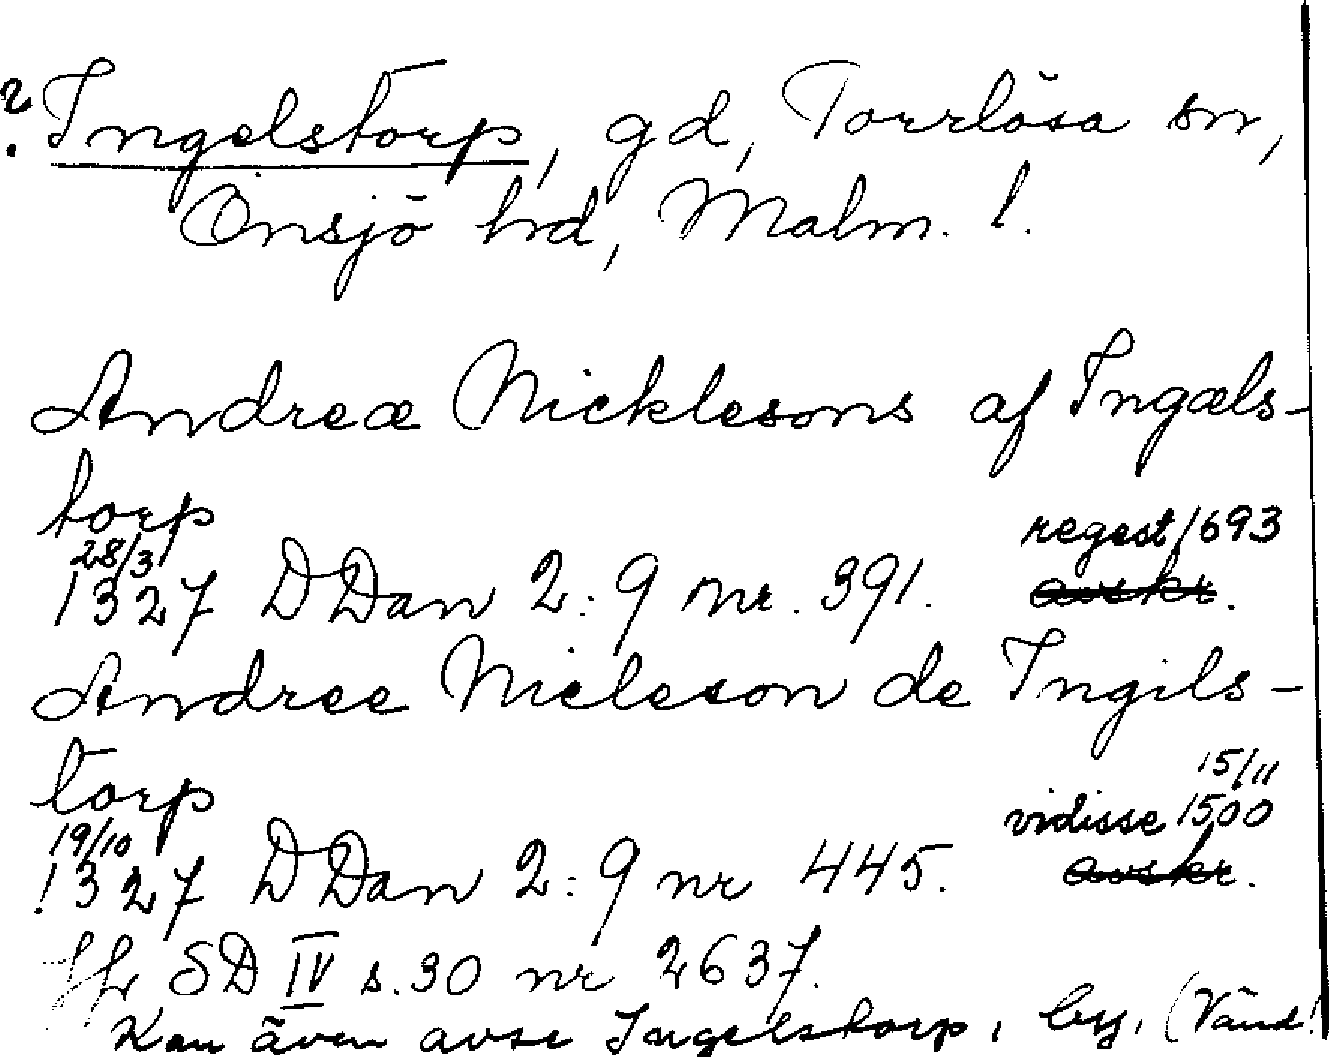 ? Ingelstorp, gd, Torrlösa sn,
Onsjö hd, Malm. l.
Andreæ Nicklesons af Ingæls-
torp
28/3 regest 1693
1327 DDan 2:9 nr. 391. avskr.
Andree Nicleson de Ingils-
torp
19/10 15/11
vidisse 1500
1327 DDan 2:9 nr 445. avskr.
Jfr SD IV s.30 nr 2637.
Kan även avse Ingelstorp, by, (Vänd!